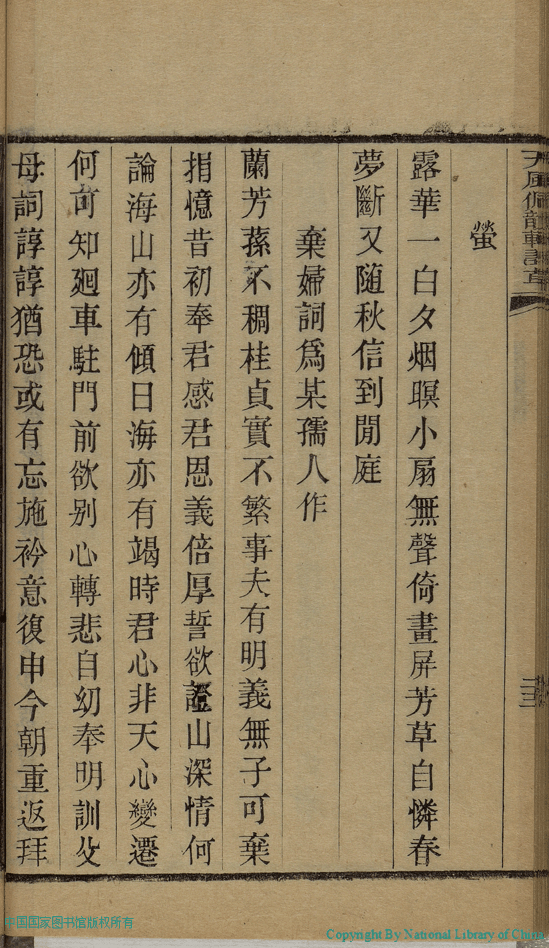 天風佩韻軒詩草
二三
螢
露華一白夕烟暝小扇無聲倚畫屏芳草自憐春
夢斷又随秋信到閒庭
棄婦詞爲某孺人作
蘭芳蓀不稠桂貞實不繁事夫有明義無子可棄
捐憶昔初奉君感君恩義倍厚誓欲證山深情何
論海山亦有傾日海亦有竭時君心非天心變遷
何可知廻車駐門前欲别心轉悲自幼奉明訓父
母詞諄諄猶恐或有忘施衿意復申今朝重返拜
中国国家图书馆版权所有
Copyright By National Library of China